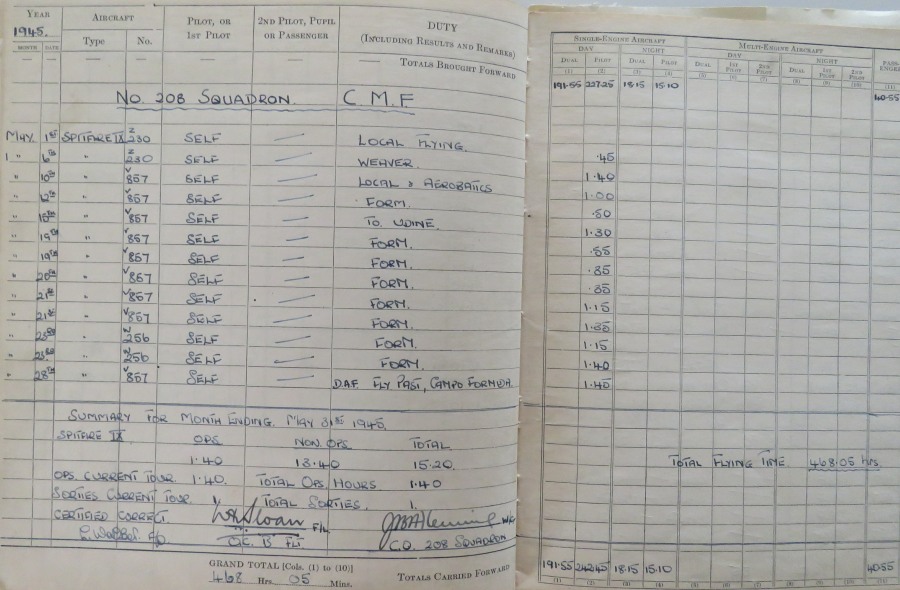 YEAR AIRCRAFT PILOT, OR 2ND PILOT, PUPIL DUTY
1945. 1ST PILOT OR PASSENGER (INCLUDING RESULTS AND REMARKS)
MONTH DATE Type No.
— — — — — — — TOTALS BROUGHT FORWARD
No 208 SQUADRON. C.M.F
MAY. 1st SPITFIRE IX Z 230 SELF — LOCAL FLYING.
1 " 6th " Z 230 SELF — WEAVER.
" 10th " V 857 SELF — LOCAL & AEROBATICS
" 12th " V 857 SELF — FORM.
" 15th " V 857 SELF — TO. UDINE.
" 19th " V 857 SELF — FORM.
" 19th " V 857 SELF — FORM.
" 20th " V 857 SELF — FORM.
" 21st " V 857 SELF — FORM.
" 21st " V 857 SELF — FORM.
" 23rd " W 256 SELF — FORM.
" 23rd " W 256 SELF — FORM.
" 28th " V 857 SELF — D.A.F FLY PAST, CAMPO FORMIDA
SUMMARY FOR MONTH ENDING. MAY 31st 1945.
SPITFIRE IX OPS NON. OPS TOTAL
1·40 13·40 15·20.
OPS. CURRENT TOUR. 1·40. TOTAL OPS HOURS 1·40
SORTIES CURRENT TOUR 1 TOTAL SORTIES. 1.
CERTIFIED CORRECT. Sloan F/L W/C
O.C. 'B' FLT. C.O. 208 SQUADRON
GRAND TOTAL [Cols. (1) to (10)] TOTALS CARRIED FORWARD
468 Hrs. 05 Mins.
SINGLE-ENGINE AIRCRAFT MULTI-ENGINE AIRCRAFT PASS-ENGER
DAY NIGHT DAY NIGHT
DUAL PILOT DUAL PILOT DUAL 1ST PILOT 2ND PILOT DUAL 1ST PILOT 2ND PILOT
(1) (2) (3) (4) (5) (6) (7) (8) (9) (10) (11)
191·55 227·25 18·15 15·10 40·55
·45
1·40
1·00
·50
1·30
·55
·35
·35
1·15
1·35
1·15
1·40
1·40
TOTAL FLYING TIME. 468·05 hrs.
191·55 242·45 18·15 15·10 40·55
(1) (2) (3) (4) (5) (6) (7) (8) (9) (10) (11)